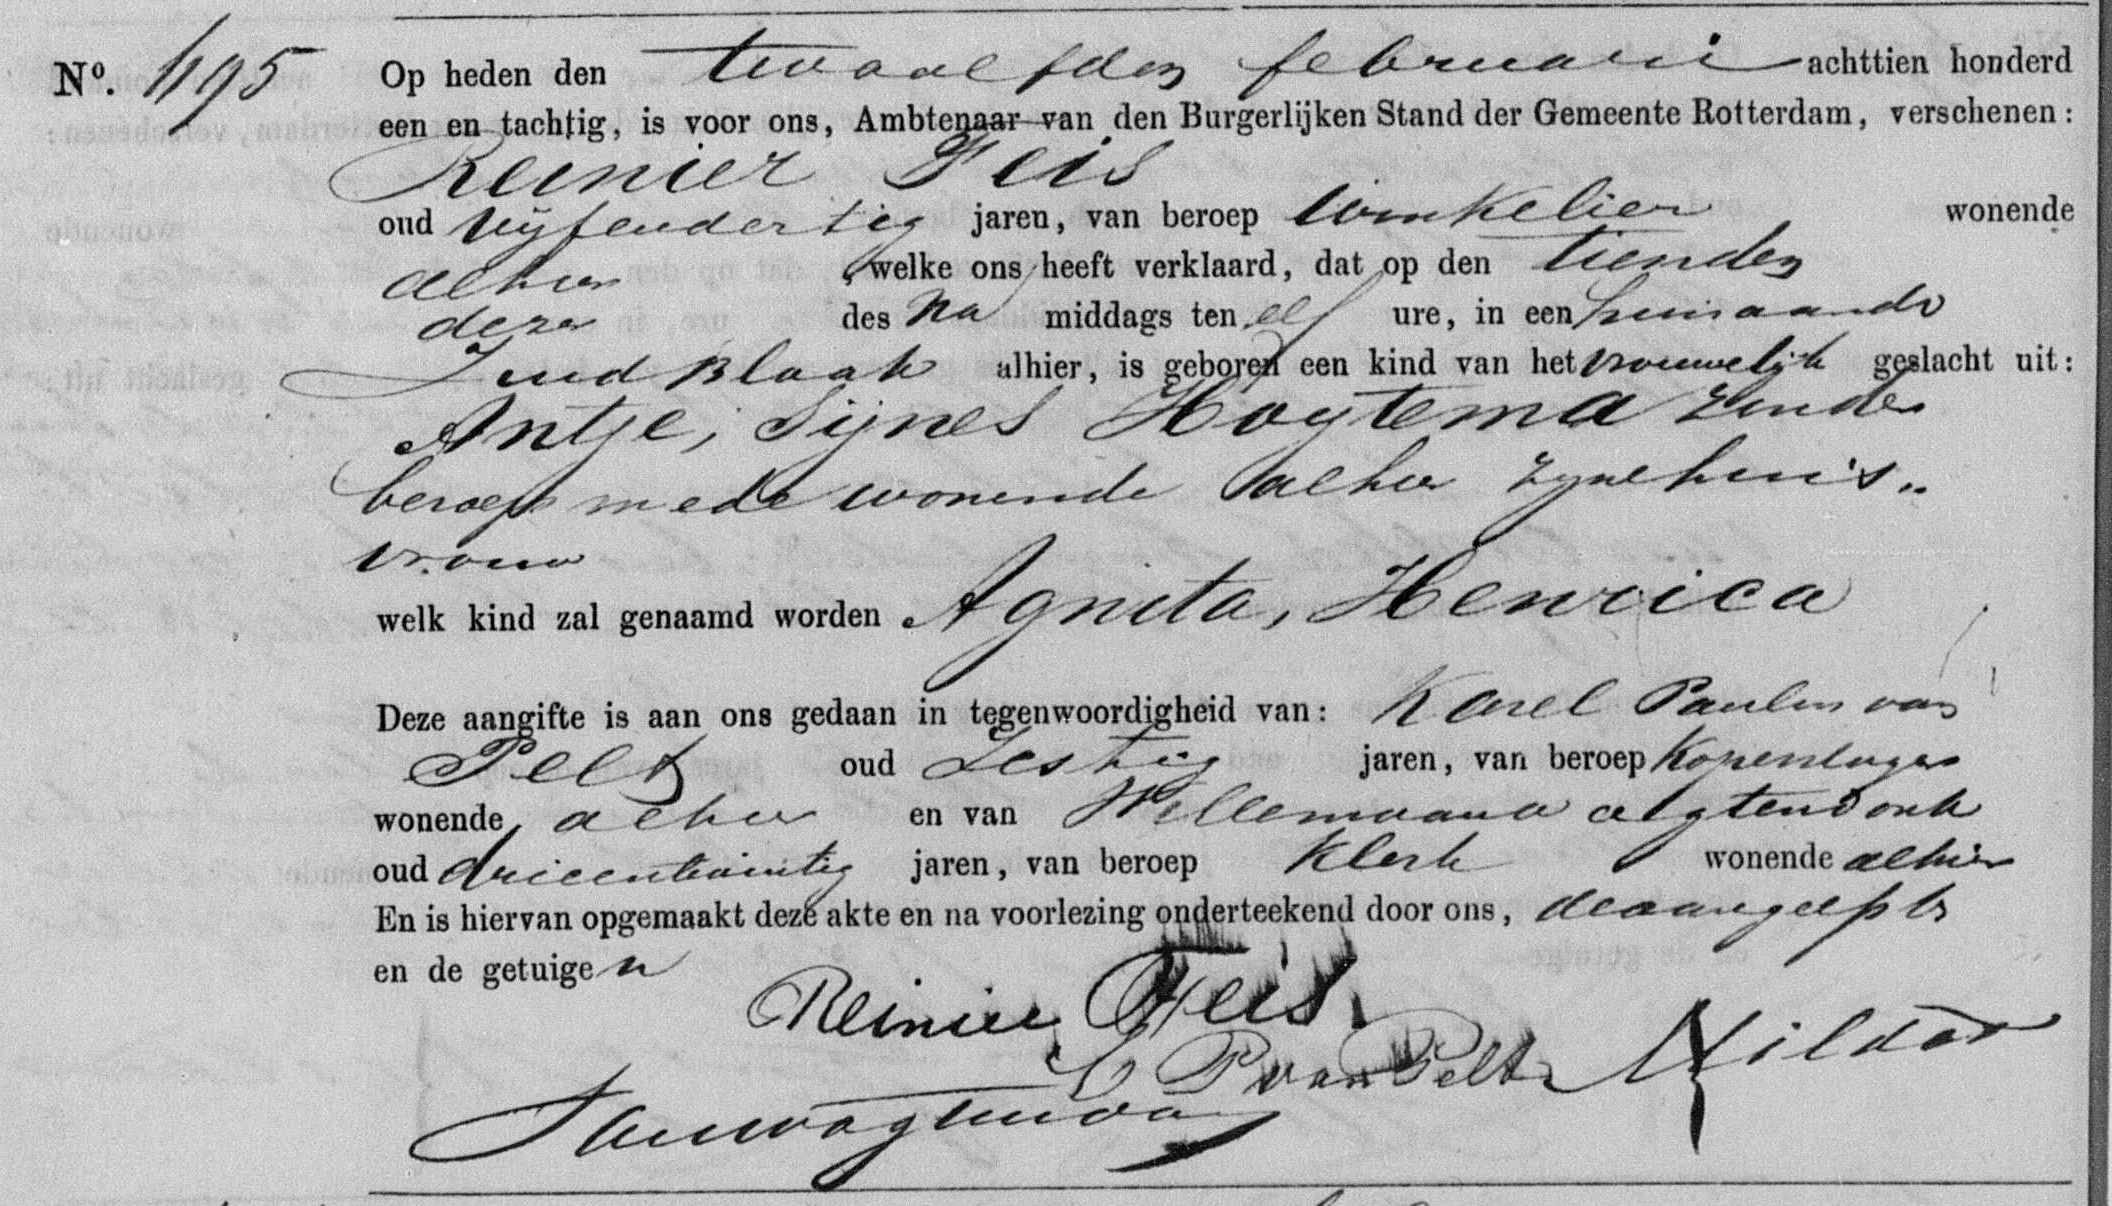 Nº. 495 Op heden den twaalfden februari achttien honderd
een en tachtig, is voor ons, Ambtenaar van den Burgerlijken Stand der Gemeente Rotterdam, verschenen:
Reinier Feis
oud vijfendertig jaren, van beroep winkelier wonende
alhier, welke ons heeft verklaard, dat op den tienden
dezer des na middags ten elf ure, in een huis aande
Zuid Blaak alhier, is geboren een kind van het vrouwelijk geslacht uit:
Antje, Sijnes Hoytema zonder
beroep mede wonende alhier zijne huis„
vrouw
welk kind zal genaamd worden Agnita, Henrica
Deze aangifte is aan ons gedaan in tegenwoordigheid van: Karel Paulus van
Pelt oud Zestig jaren, van beroep Koperslager
wonende alhier en van
oud drieentwintig jaren, van beroep Klerk wonende alhier
En is hiervan opgemaakt deze akte en na voorlezing onderteekend door ons, de aangever
en de getuigen
Reinier Feis.
C P van Pelt